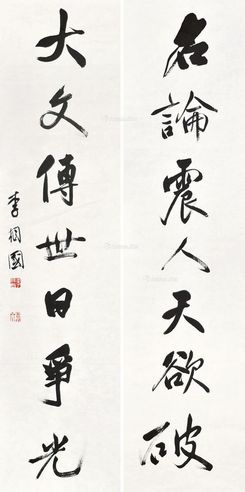 名論震人天欲破
大文傳世日爭光
李相國